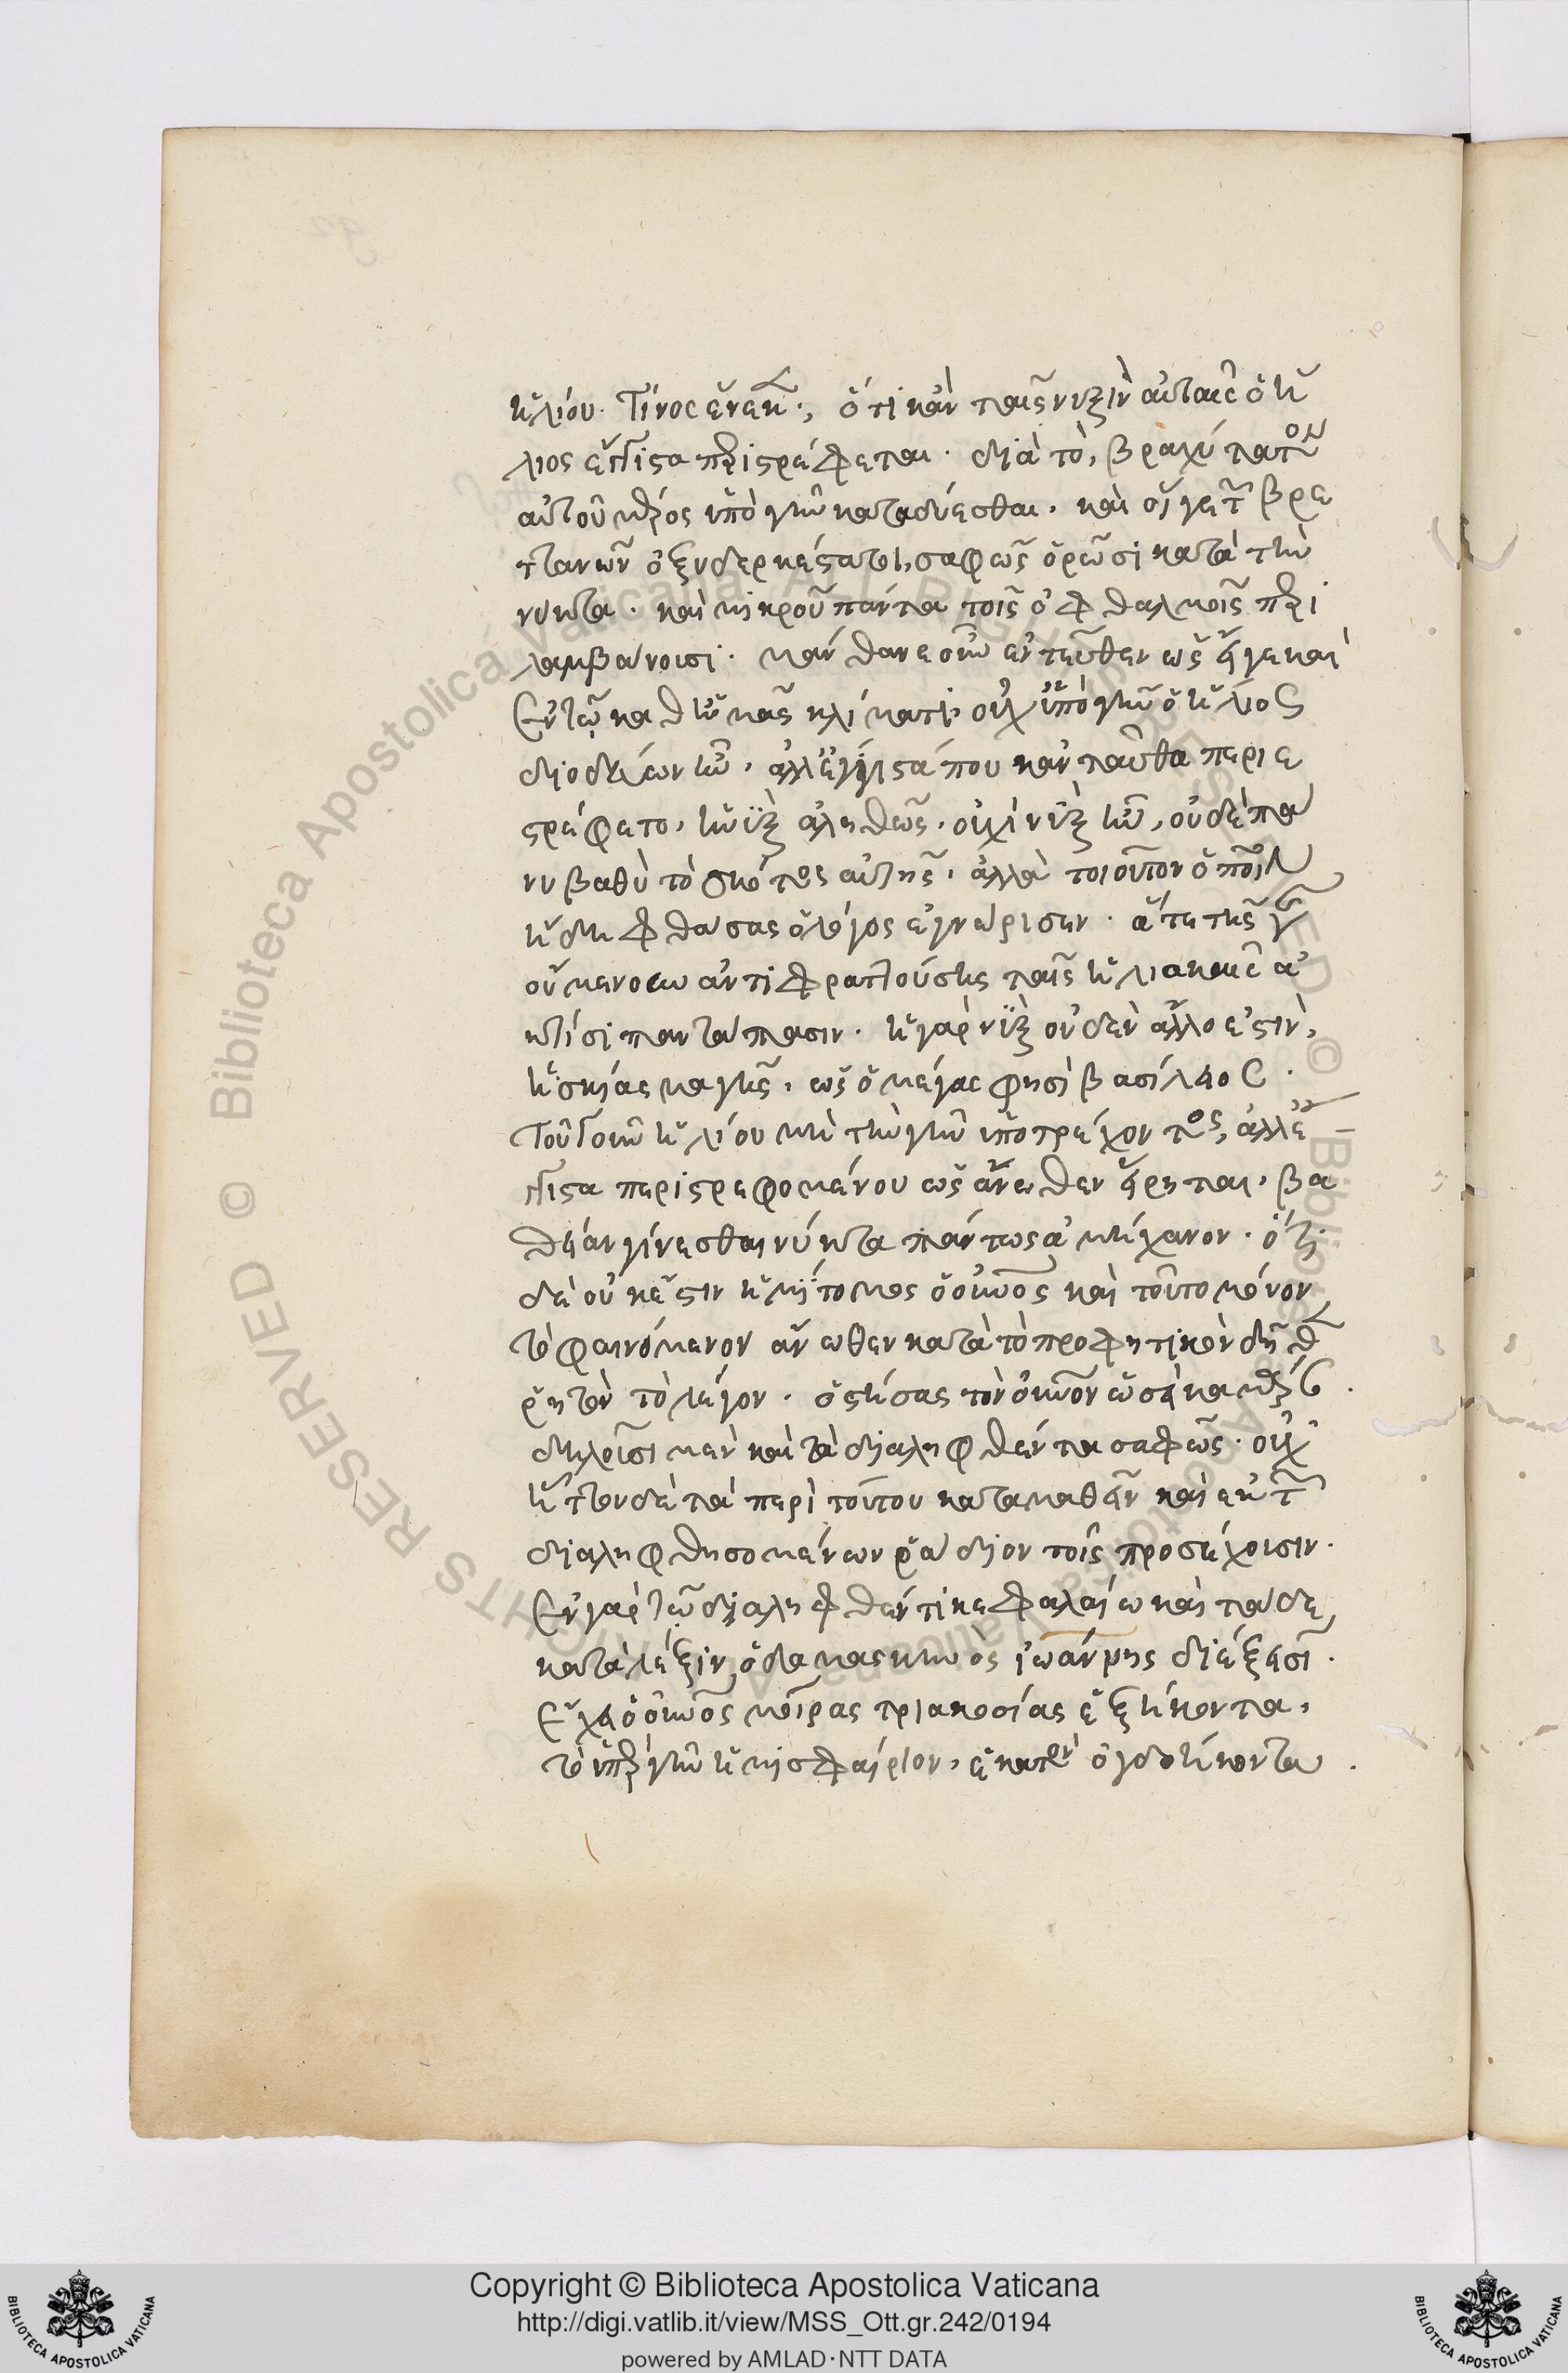 ἡλίου. Τίνος ἕνεκα; ὅτι κἀν ταῖς νυξὶν αὐταῖς ὁ ἥ
λιος ἔγγιστα περιστρέφεται. διὰ τὸ, βραχύτατον
αὐτοῦ μέρος ὑπὸ γῆν καταδύεσθαι. καὶ οἵγε τῶν βρε
ττανῶν ὀξυδερκέστατοι, σαφῶς ὁρῶσι κατὰ τὴν
νύκτα. καὶ μικροῦ πάντα τοῖς ὀφθαλμοῖς περι
λαμβάνουσι. μάνθανε οὖν ἐντεῦθεν ὡς εἴγε καὶ
ἐν τῶ καθ ἡμᾶς κλίματι οὐχ ὑπὸ γῆν ὁ ἥλιος
διοδεύων ἦν, ἀλλ ἔγγιστά που κἀνταῦθα περιε
στρέφετο, ἡ νὺξ ἀληθῶς, οὐχὶ νὺξ ἦν, οὐδὲ πά
νυ βαθὺ τὸ σκότος αὐτῆς, ἀλλὰ τοιοῦτον ὁποῖον
ἤδη φθάσας ὁ λόγος ἐγνώρισεν. ἅτε τῆς γῆς
οὐμενοῦν ἀντιφραττούσης ταῖς ἡλιακαῖς ἀ
κτίσι παντάπασιν. ἡ γὰρ νὺξ οὐδὲν ἄλλο ἐστὶν,
ἢ σκίασμα γῆς, ὡς ὁ μέγας φησὶ βασίλειος.
Τοῦ γοῦν ἡλίου μὴ τὴν γῆν ὑποτρέχοντος, ἀλλ ἔγ
γιστα περιστρεφομένου ὡς ἄνωθεν εἴρηται, βα
θεῖαν γίνεσθαι νύκτα πάντως ἀμήχανον. ὅτι
δὲ οὐκ ἔστιν ἡμίτομος ὁ οὐρανὸς καὶ τοῦτο μόνον
τὸ φαινόμενον ἄνωθεν κατὰ τὸ προφητικὸν δῆθεν
ῥητὸν τὸ λέγον. ὁ στήσας τὸν οὐρανὸν ὡσεὶ καμάραν.
δηλοῦσι μὲν καὶ τὰ διαληφθέντα σαφῶς. οὐχ
ἧττον δὲ τὰ περὶ τούτου καταμαθεῖν καὶ ἐκ τῶν
διαληφθησομένων ῥάδιον τοῖς προσέχουσιν.
Ἐν γὰρ τῶ διαληφθέντι κεφαλαίω καὶ τάδε
κατὰ λέξιν, ὁ δαμασκηνὸς ἰωάννης διέξεισι.
Ἔχει ὁ οὐρανὸς μοίρας τριακοσίας ἑξήκοντα,
τὸ ὑπὲρ γῆν ἡμισφαίριον, ἑκατὸν ὀγδοήκοντα.
Copyright © Biblioteca Apostolica Vaticana
http://digi.vatlib.it/view/MSS_Ott.gr.242/0194
powered by AMLAD·NTT DATA